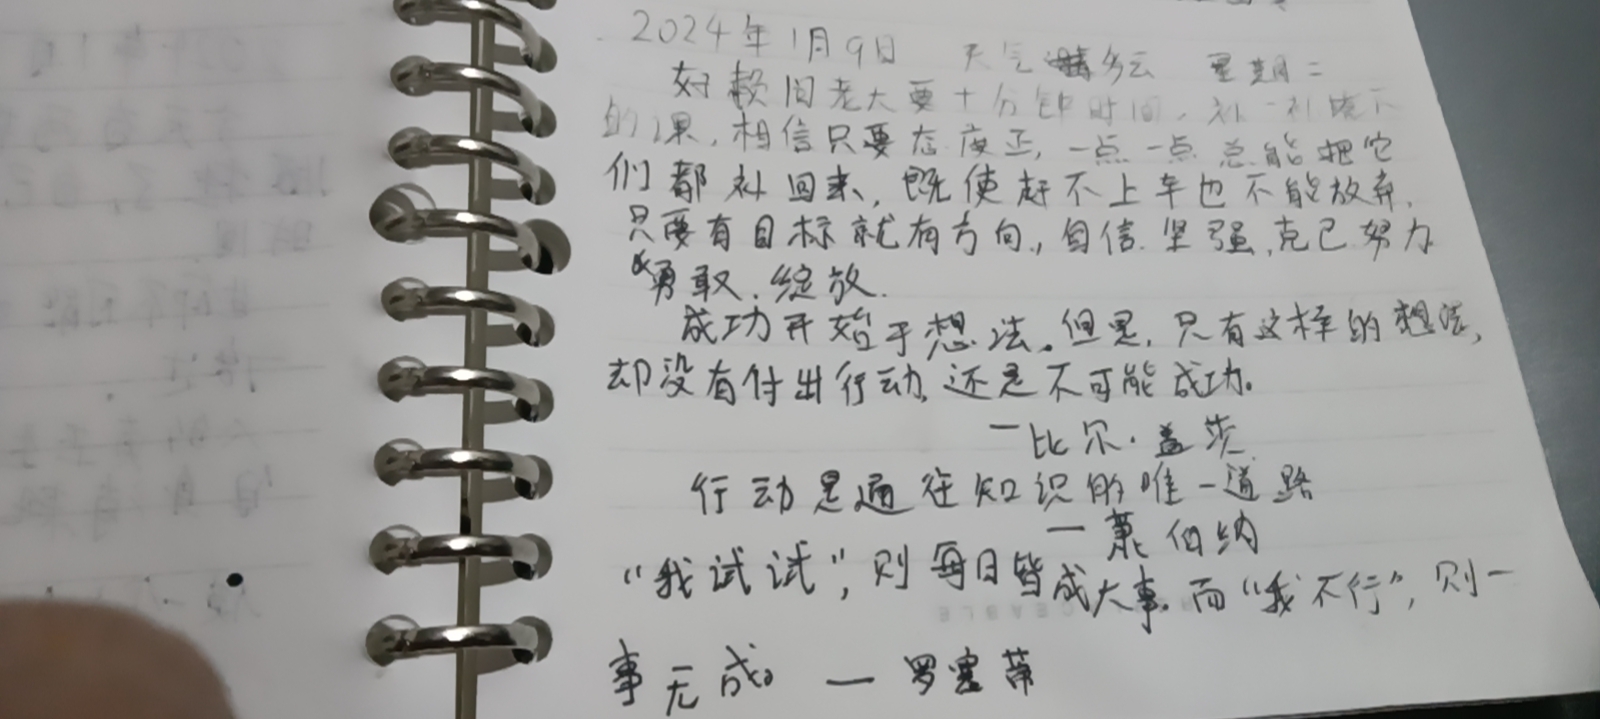 2024年1月9日 天气 多云 星期二
好赖问老大要十分钟时间,补一补落下
的课,相信只要态度正,一点一点总能把它
们都补回来,既使赶不上车也不能放弃,
只要有目标就有方向,自信.坚强,克己.努力
勇敢.绽放.
成功开始于想法。但是,只有这样的想法,
却没有付出行动,还是不可能成功。
—比尔·盖茨.
行动是通往知识的唯一道路
—萧伯纳
“我试试”,则每日皆成大事.而“我不行”,则一
事无成。 — 罗塞蒂